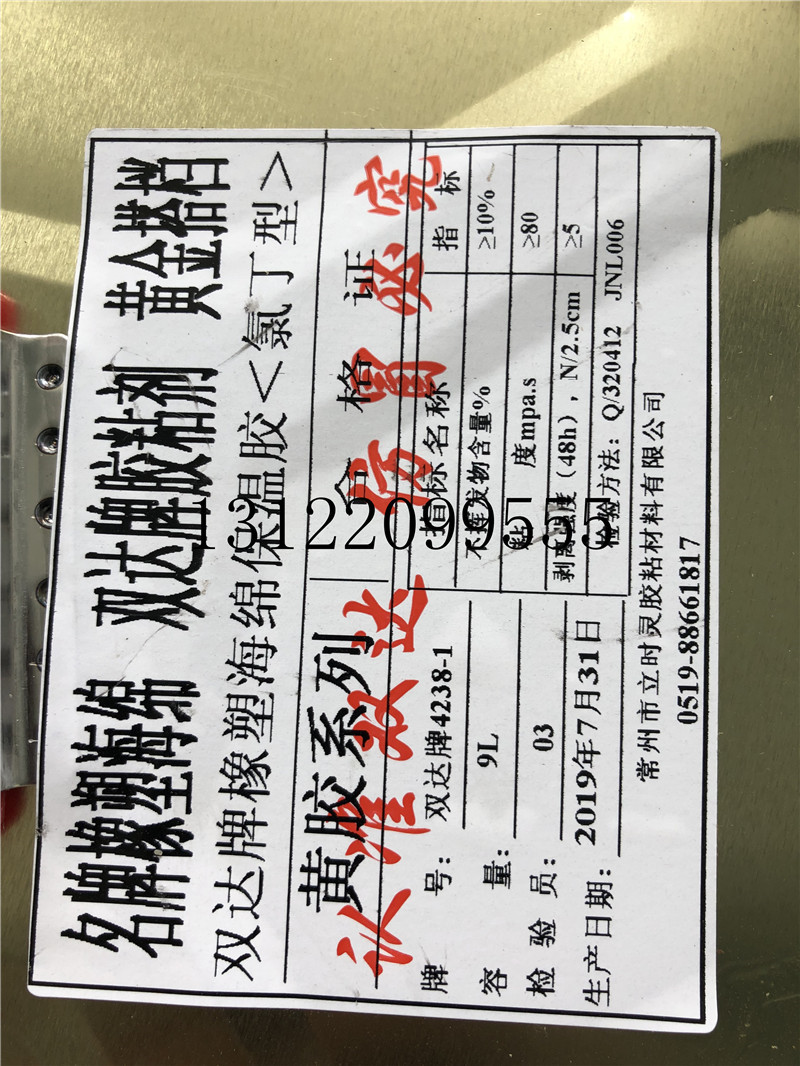 名牌橡塑海绵 双达牌胶粘剂 黄金搭档
双达牌橡塑海绵保温胶<氯丁型>
黄胶系列 合格证
认准双达 仿冒必究
牌 号: 双达牌4238-1
容 量: 9L
检 验 员: 03
生产日期: 2019年7月31日
指标名称 指 标
不挥发物含量% ≥10%
粘 度mpa.s ≥80
剥离强度(48h), N/2.5cm ≥5
检验方法: Q/320412 JNL006
常州市立时灵胶粘材料有限公司
0519-88661817
13122099555